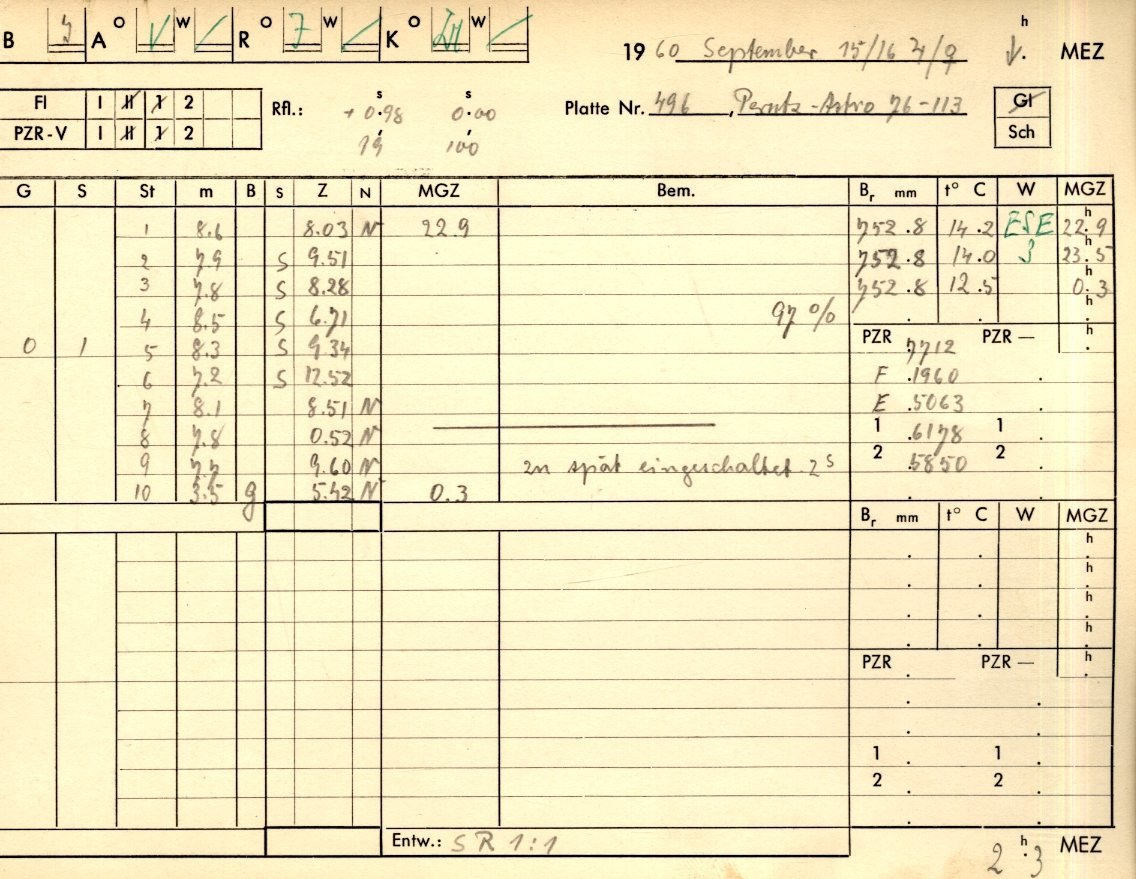 B A O W R O W K O W
h
19 60 September 15/16 MEZ
Fl I II 1 2
PZR-V I II 1 2
Rfl.: s s
+0.98 0.00
19 100
Platte Nr. 496, Perutz-Astro 76-113
Gl
Sch
G S St m B S Z N MGZ Bem. Br mm t° C W MGZ
1 8.6 8.03 N 22.9 752.8 14.2 ESE 22.9 h
2 7.9 S 9.51 752.8 14.0 3 23.5 h
3 7.8 S 8.28 752.8 12.5 0.3 h
4 8.5 S 6.71 97% . . h
0 1 5 8.3 S 9.34 PZR 7712 PZR — h
6 7.2 S 12.52 F .1960
7 8.1 8.51 N E .5063
8 7.8 0.52 N 1 .6178 1
9 7.7 9.60 N zu spät eingeschaltet 2 s 2 .5850 2
10 3.5 g 5.42 N 0.3
Br mm t° C W MGZ
h
h
h
h
PZR PZR — h
1 1
2 2
Entw.: SR 1:1
2 h .3 MEZ